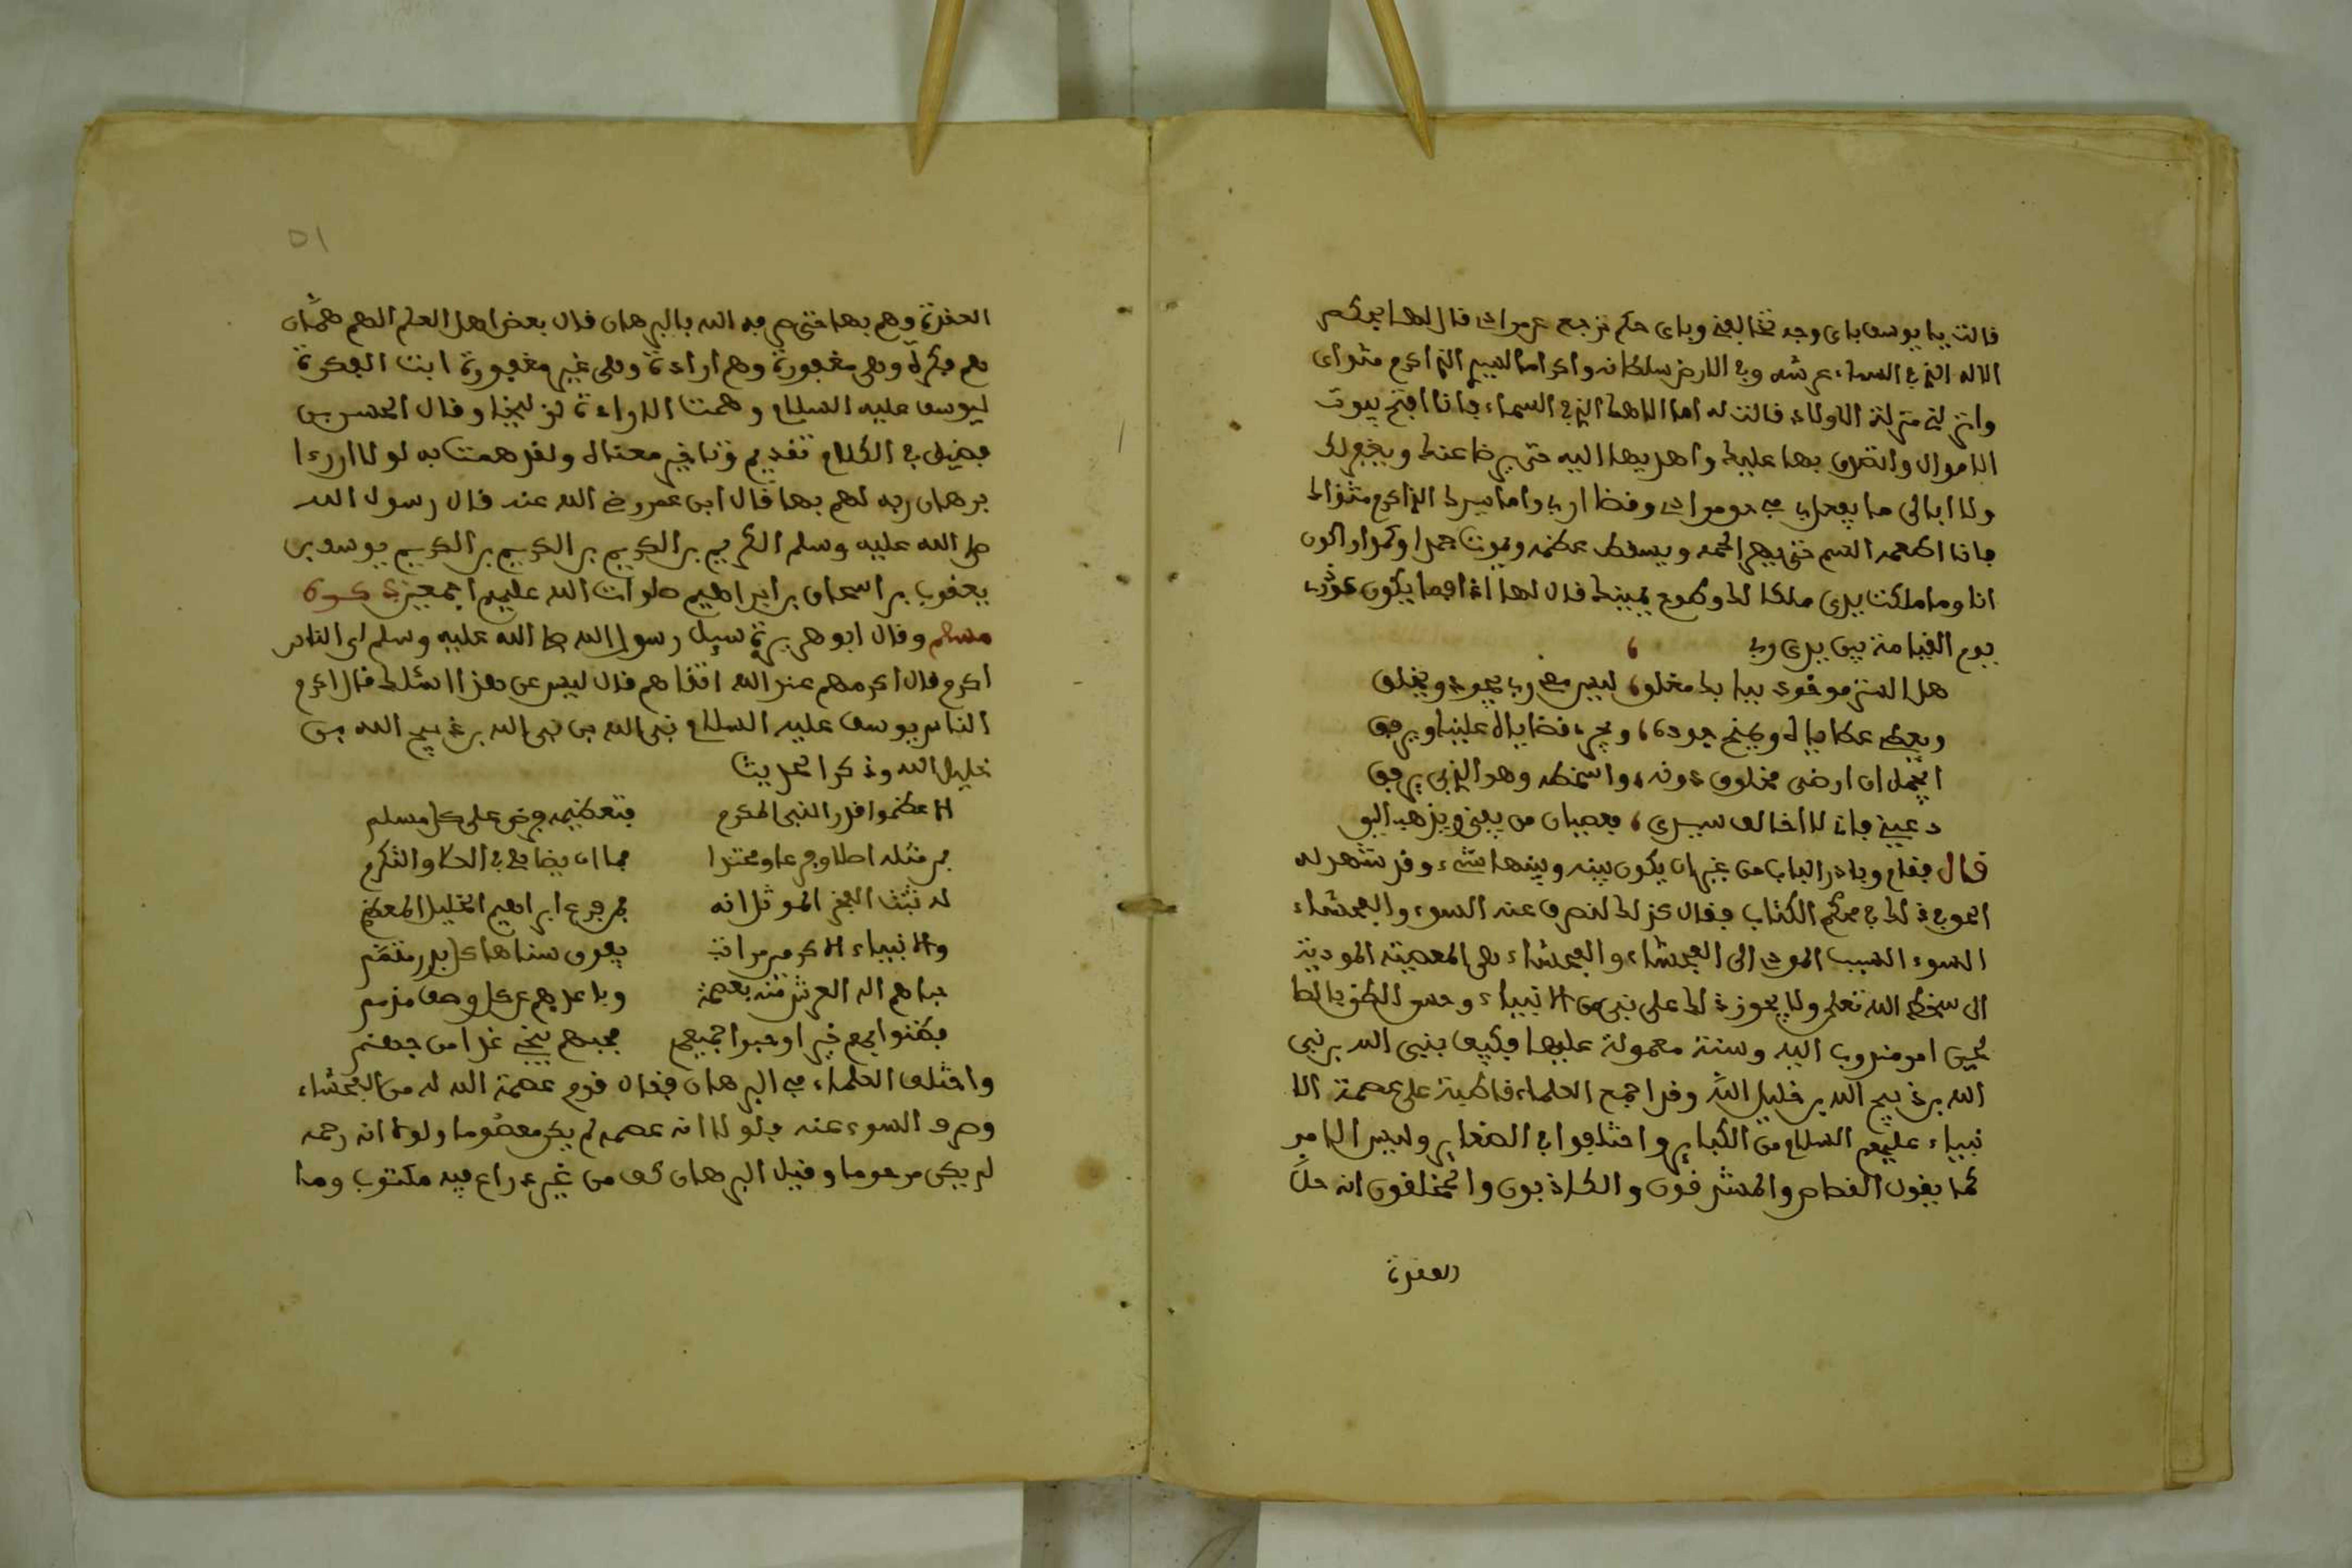 قالت يا يوسف باي وجه تخالفني وباي حكم ترجع عن مرادي قال لها بحكم
الاله الذي في السماء عرشه وفي الارض سلطانه واكراما لسيدي الذي اكرم مثواي
وانزلني منزلة الاولاد قالت له اما الاهك الذي في السماء فانا افتح بيوت
الاموال واتصدق بها عليك واهديها اليه حتى يرضا عنك ويغفر لك
ولا ابالي ما يفعل بي في هو مرادي وقضا اربي واما سيدك الذي اكرم مثواك
فانا اطعمه السم حتى يهرا لحمه ويسقط عظمه ويموت حمدا وكمدا واكون
انا وما ملكت يدي ملكا لك وطوع يمينك قال لها اذا فما يكون عذري
يوم القيامة بين يدي ربي
هل الستر موقوف بباب مغلق ليس معي ربي يجود ويخلق
ويعطي عطاياه ويمنح جوده ويجري قضاياه علينا ويرفق
ايجمل ان ارضي مخلوق دونه واسخطه وهو الذي بي يرفق
دعيني فاني لا اخالف سيدي فعصيان من يغني ويذهب اليق
قال فقام وبادر الباب من غير ان يكون بينه وبينها شيء وقد شهد له
الحق في ذلك في محكم الكتاب فقال كذلك لنصرف عنه السوء والفحشاء
السوء السبب الموديي الى الفحشاء والفحشاء هي المعصية المودية
الى سخط الله تعلى ولا يجوز ذلك على نبي من الانبياء وحسن الظن بالصا
لحين امر مندوب اليه وسنة معمولة عليها فكيف بنبي الله بن نبي
الله بن ذبيح الله بن خليل الله وقد اجمع العلماء قاطبة على عصمة الا
نبياء عليهم السلام من الكبائر واختلفوا في الصغاير وليس الامر
كما يقول القصاص والمشرفون والكاذبون والمختلفون انه حل
العقدة
٥١
العقدة وهم بها حتى صرفه الله بالبرهان قال بعض اهل العلم الهم همان
هم فكرة وهي مغفورة وهم ارادة وهي غير مغفورة ابنت الفكرة
ليوسف عليه السلام وهمت الارادة لزليخا وقال الحسن بن
فضيل في الكلام تقديم وتاخير معناه ولقد همت به لولا ان رءا
برهان ربه لهم بها قال ابن عمر رضي الله عنه قال رسول الله
صلى الله عليه وسلم الكريم بن الكريم بن الكريم بن الكريم يوسف بن
يعقوب بن اسحاق بن ابراهيم صلوات الله عليهم اجمعين
مسلم وقال ابو هريرة سيل رسول الله صلى الله عليه وسلم اي الناس
اكرم قال اكرمهم عند الله اتقاهم قال ليس عن هذا اسئلك قال اكرم
الناس يوسف عليه السلام نبي الله بن نبي الله بن ذبيح الله بن
خليل الله وذكر الحديث
الا عظموا قدر النبي المكرم فتعظيمه فرض على كل مسلم
فمن مثله اصلا وفرعا ومحتدا فما ان يضاهى في العلا والتكرم
له نبت الفخر الموثل انه فمن فرع ابراهيم الخليل المعظم
والانبياء الاكرمين مراتب يفوق سناها كل بدر متمم
حباهم اله العرش منه بعصمة وباعدهم عن كل وصف مذمم
فظنوا بهم خيرا وحبوا جميعهم فحبهم ينجي غدا من جهنم
واختلف العلماء في البرهان فقال قوم عصمة الله له من الفحشاء
وصرف السوء عنه ولولا انه عصمه لم يكن معصوما ولولا انه رحمه
لم يكن مرحوما وقيل البرهان كف من غير ذراع فيه مكتوب وما